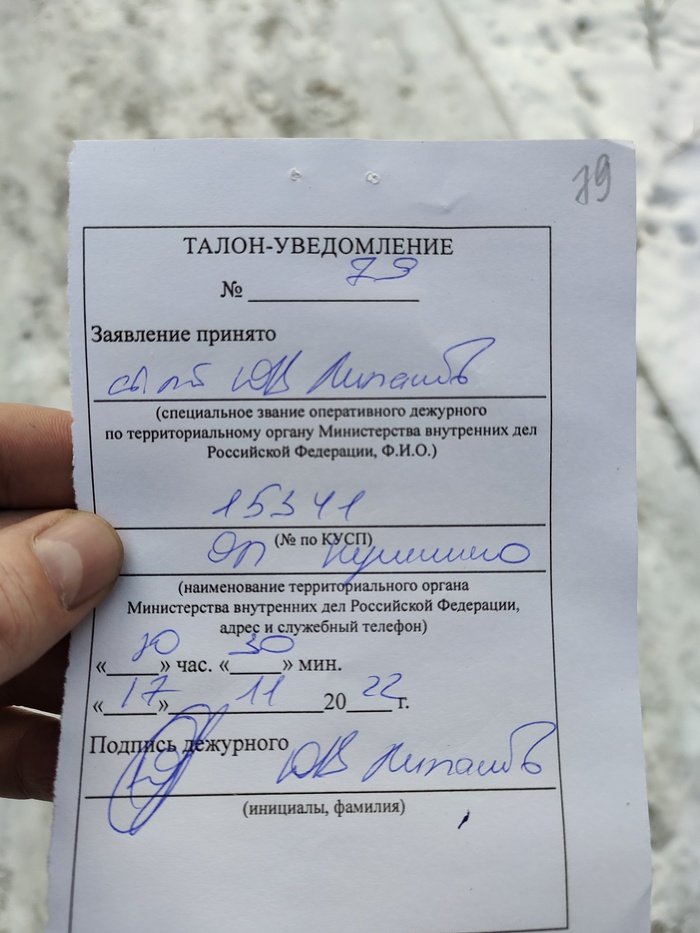 79
ТАЛОН-УВЕДОМЛЕНИЕ
№ 79
Заявление принято
ЮВ
(специальное звание оперативного дежурного
по территориальному органу Министерства внутренних дел
Российской Федерации, Ф.И.О.)
15341
(№ по КУСП)
ОП
(наименование территориального органа
Министерства внутренних дел Российской Федерации,
адрес и служебный телефон)
«10» час. «30» мин.
«17» 11 2022 г.
Подпись дежурного
ЮВ
(инициалы, фамилия)